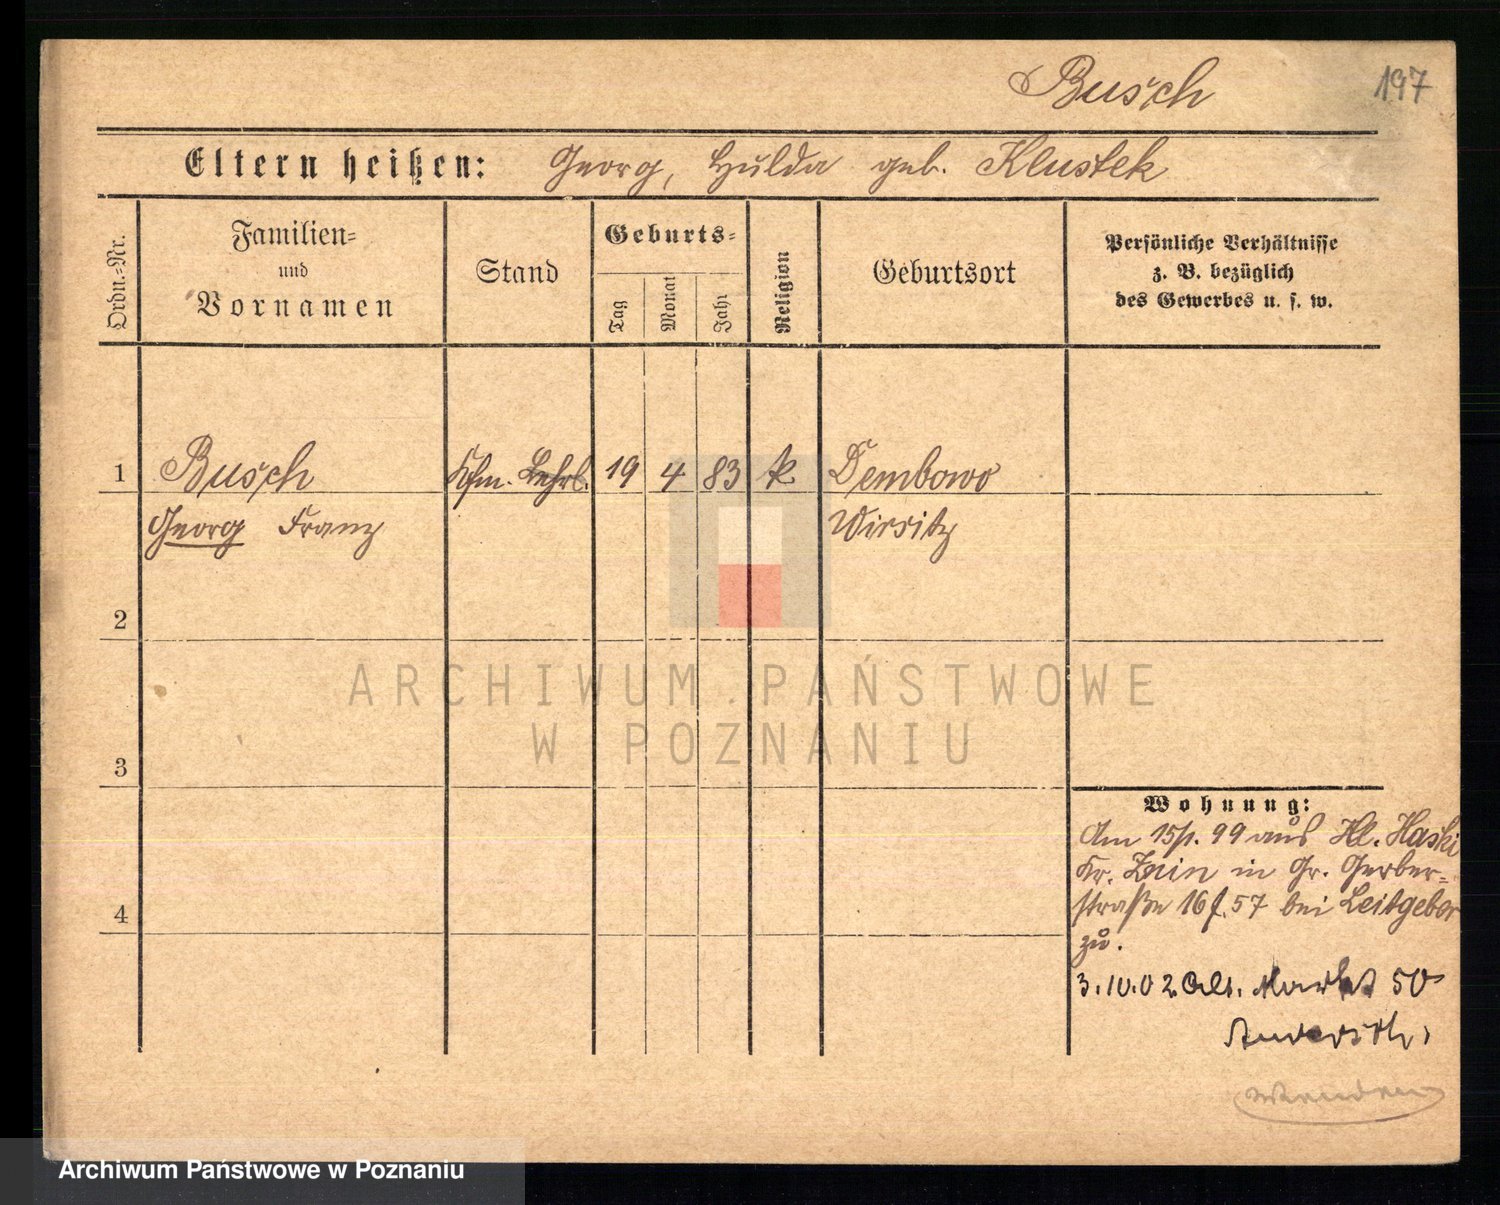 Busch
197
Eltern heißen: Georg, Hulda geb. Klustek
Ordn.-Nr.
Familien-
und
Vornamen
Stand
Geburts-
Tag
Monat
Jahr
Religion
Geburtsort
Persönliche Verhältnisse
z. B. bezüglich
des Gewerbes u. s. w.
1 Busch Kfm. Lehrl. 19 4 83 k Dembowo
Georg Franz Wirsitz
2
3
4
Wohnung:
Am 15/1. 99 aus Kl.
Kr. Znin in Gr. Gerber-
straße 16 f. 57 bei Leitgeber
zu.
3.10.02 Alt. Markt 50
Wenden
ARCHIWUM PAŃSTWOWE
W POZNANIU
Archiwum Państwowe w Poznaniu